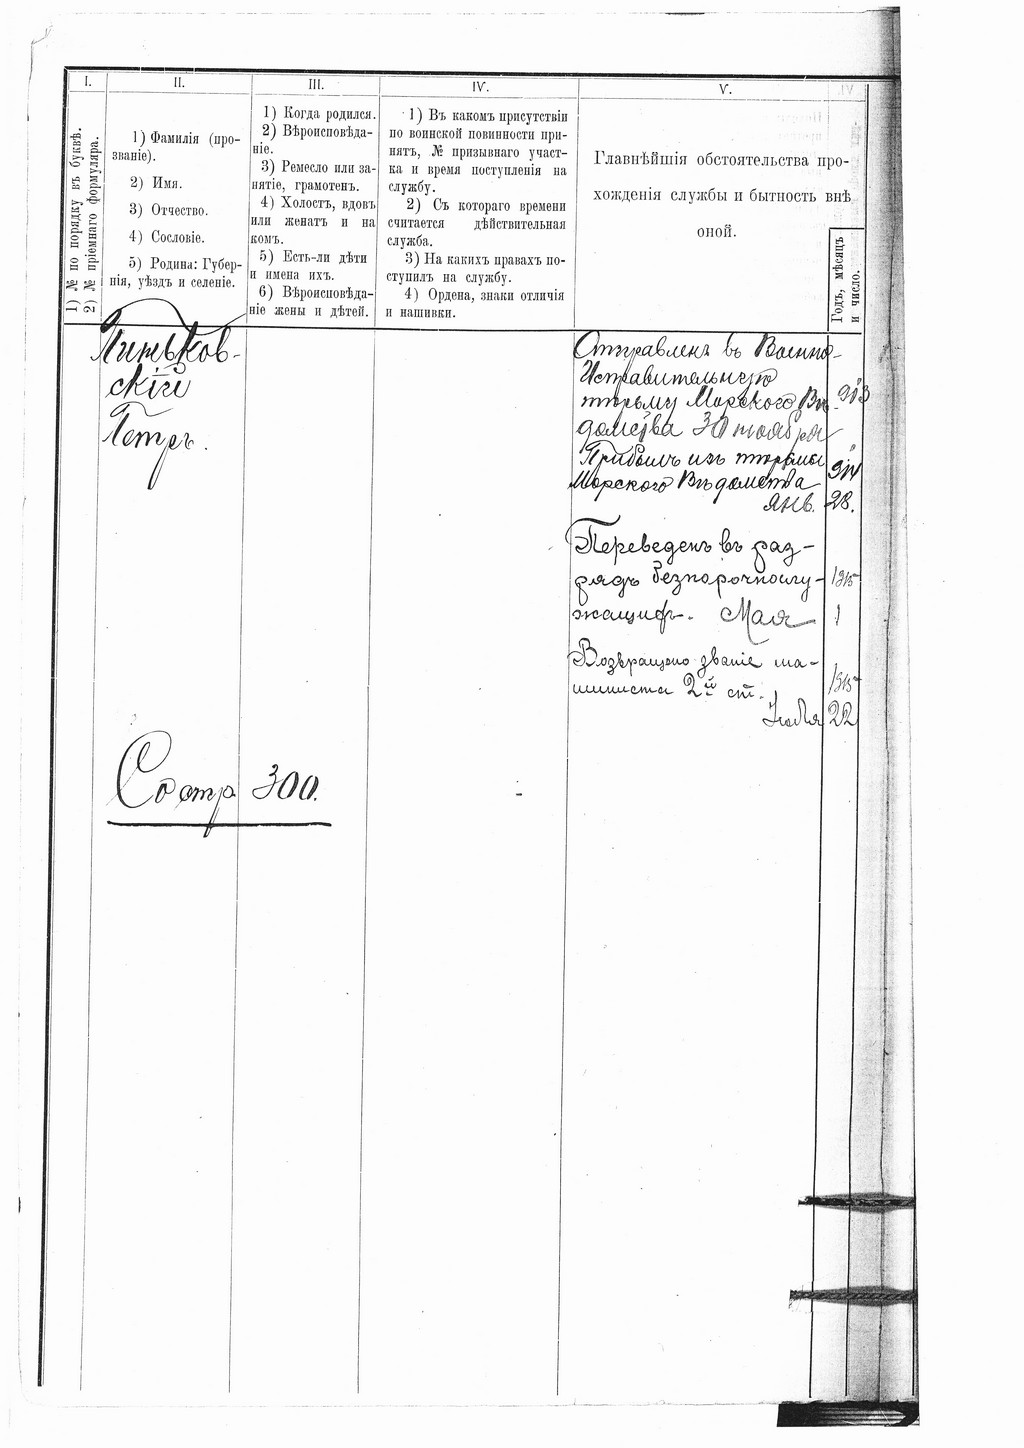 I.
II.
III.
IV.
V.
VI.
1) № по порядку въ буквѣ.
2) № пріемнаго формуляра.
1) Фамилія (про-
званіе).
2) Имя.
3) Отчество.
4) Сословіе.
5) Родина: Губер-
нія, уѣздъ и селеніе.
1) Когда родился.
2) Вѣроисповѣда-
ніе.
3) Ремесло или за-
нятіе, грамотенъ.
4) Холостъ, вдовъ
или женатъ и на
комъ.
5) Есть-ли дѣти
и имена ихъ.
6) Вѣроисповѣда-
ніе жены и дѣтей.
1) Въ какомъ присутствіи
по воинской повинности при-
нятъ, № призывнаго участ-
ка и время поступленія на
службу.
2) Съ котораго времени
считается дѣйствительная
служба.
3) На какихъ правахъ по-
ступилъ на службу.
4) Ордена, знаки отличія
и нашивки.
Главнѣйшія обстоятельства про-
хожденія службы и бытность внѣ
оной.
Годъ, мѣсяцъ
и число.
Пиньков-
скій
Петръ.
Отправленъ въ Военно-
Исправительную
тюрьму Морского Вѣ- 913
домства 30 ноября
Прибылъ изъ тюрьмы
Морского Вѣдомства 914
янв. 28.
Переведенъ въ раз-
рядъ безпорочнослу- 1915
жащихъ. Мая 1
Возвращено званіе ма-
шиниста 2й ст. 1915
22
Со стр 300.